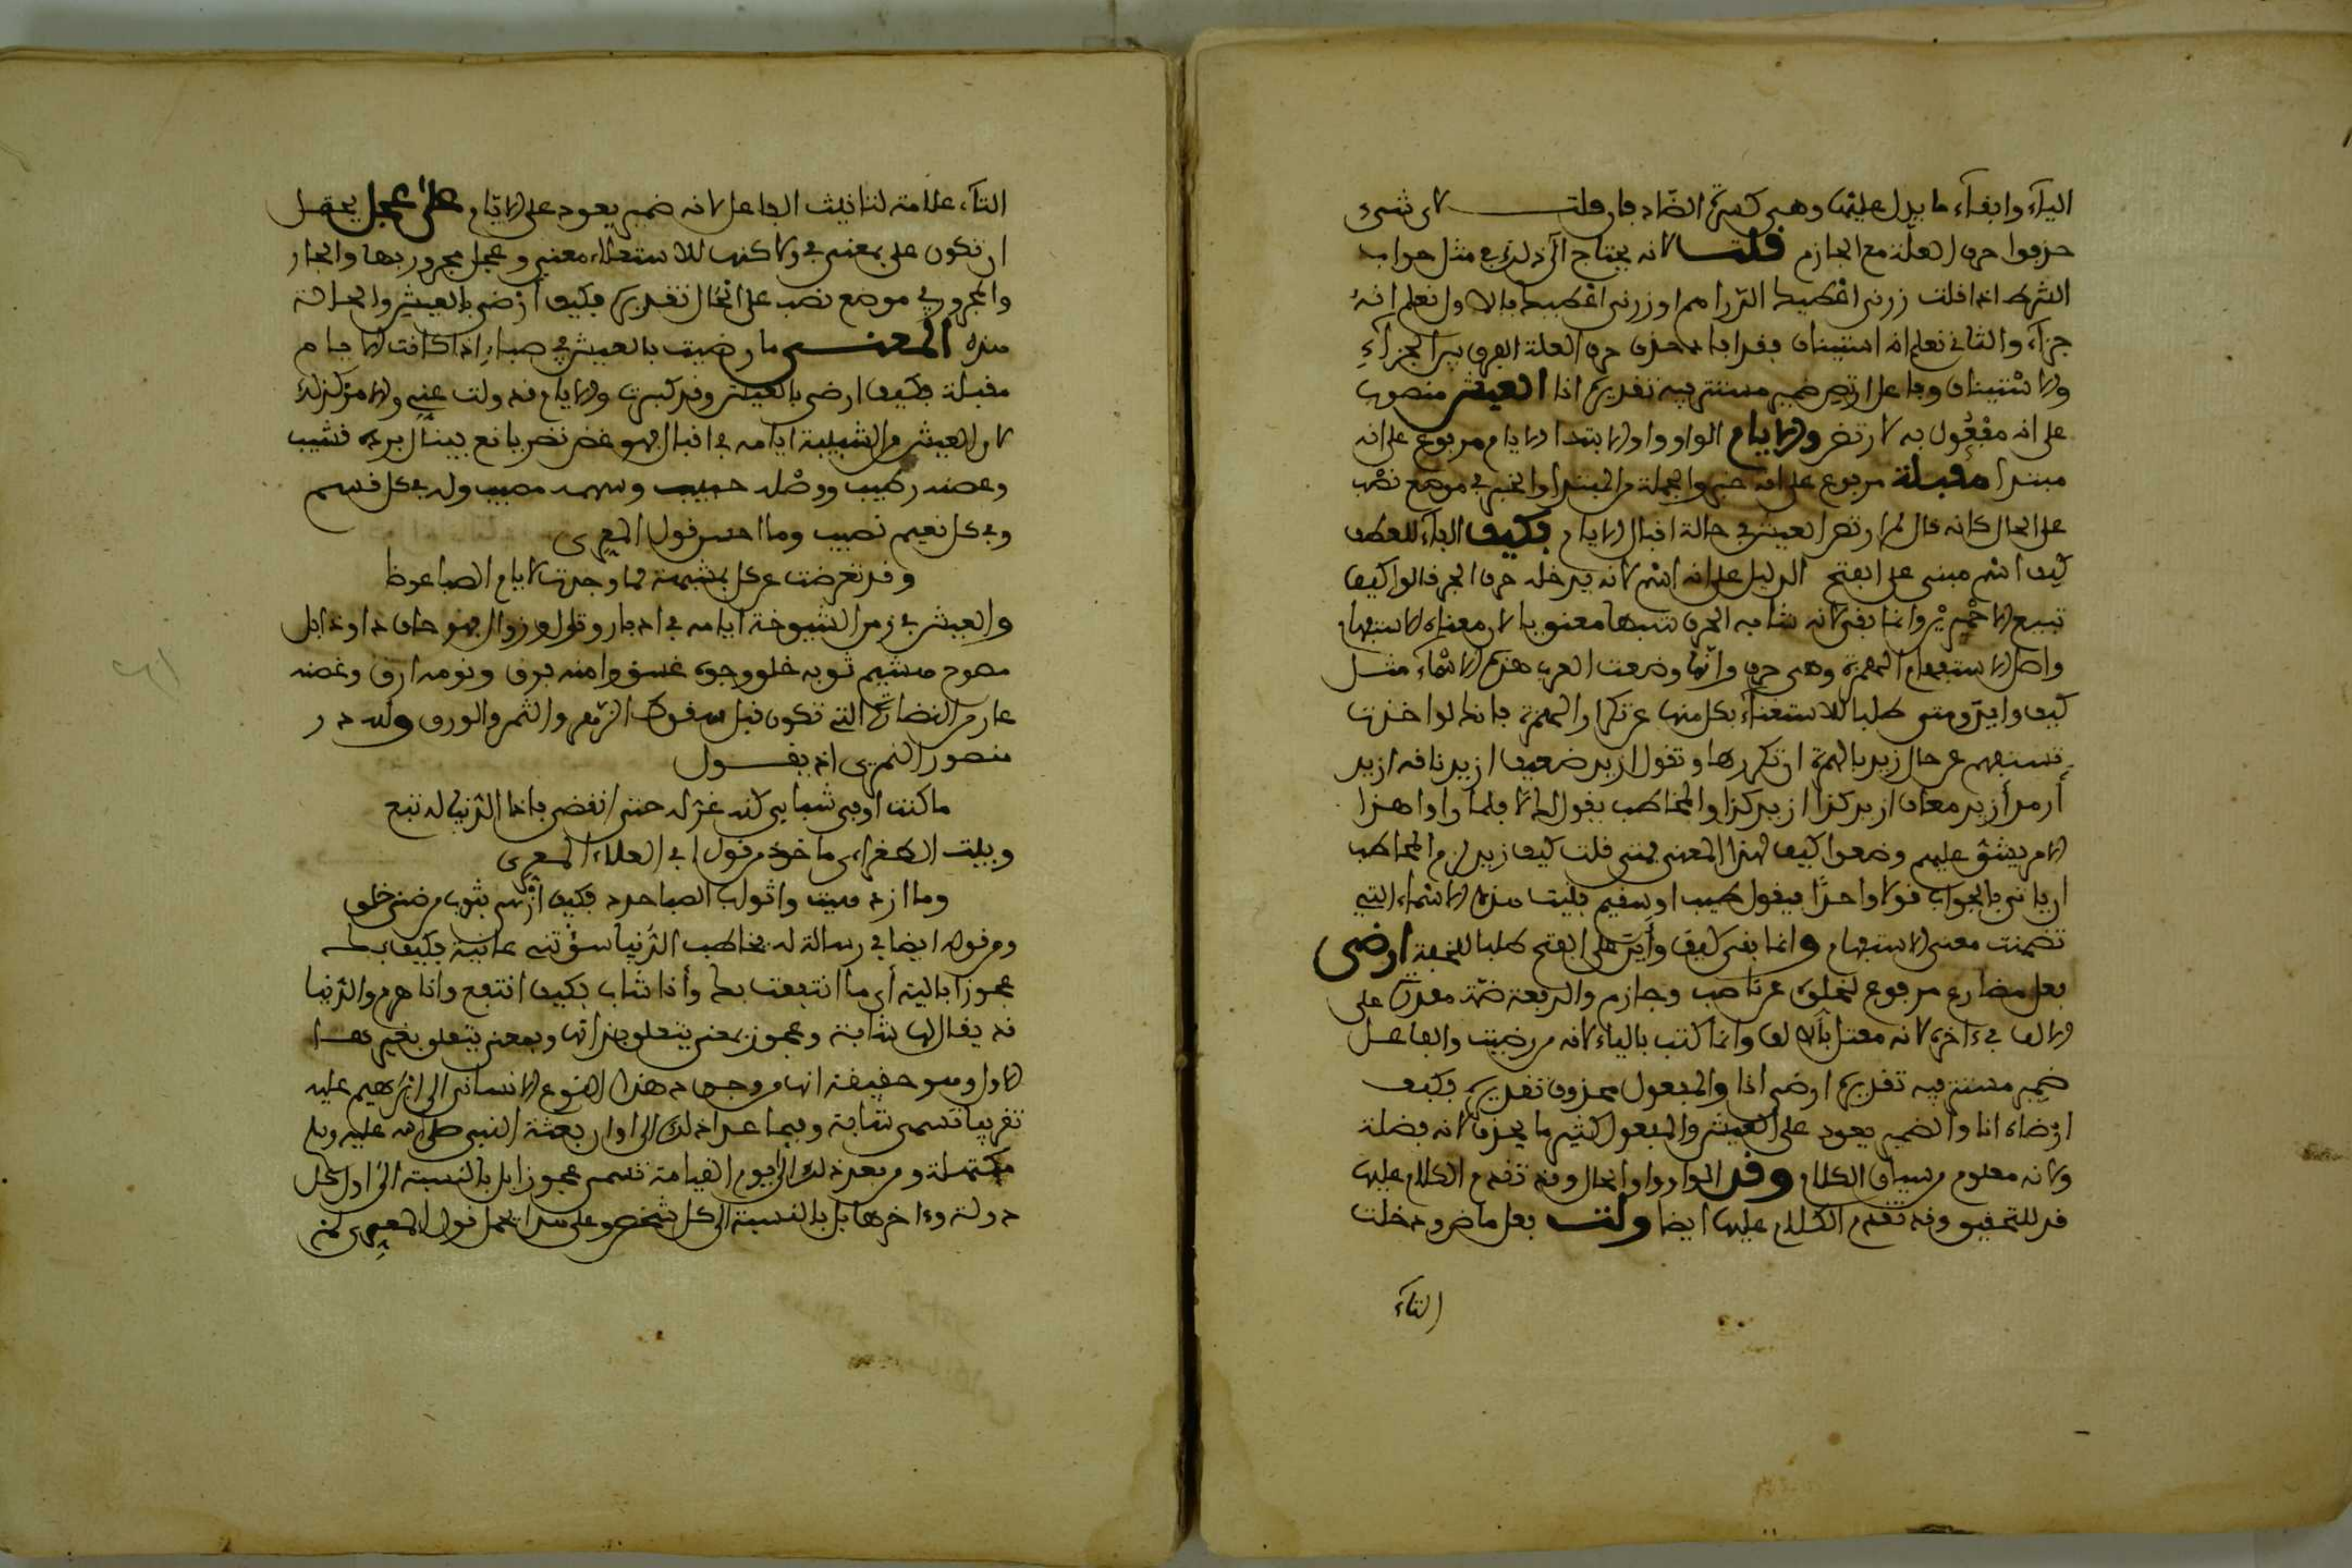 اليآء وابقآء ما يدل عليها وهى كسرة الضاد فان قلت لاى شىء
حذفوا حرف العلة مع الجازم قلت لانه يحتاج الى ذلك فى مثل جواب
الشرط اذا قلت زرنى اعطيك الدراهم او زرنى اعطيك فالاول تعلم انه
جزآء والثانى تعلم انه استيناف فقد ابان حذف حرف العلة الفرق بين الجزآء
والاستيناف وفاعل ارتض ضمير مستتر فيه تقديره انا العيش منصوب
على انه مفعول به لارتض والايام الواو واو الابتدا الايام مرفوع على انه
مبتدا مقبلة مرفوع على انه خبر والجملة من المبتدا والخبر فى موضع نصب
على الحال كانه قال لم ارتض العيش فى حالة اقبال الايام فكيف الفآء للعطف
كيف اسم مبنى على الفتح الدليل على انه اسم لانه يدخله حرف الجر قالوا كيف
تبيع الاحمرين وانما بنى لانه شابه الحرف شبها معنويا لان معناه الاستفهام
واصل الاستفهام الهمزة وهى حرف وانما وضعت العرب هذه الاسمآء مثل
كيف واين ومتى طلبا للاستغنآء بكل منها عن تكرار الهمزة فانه لو اخذت
تستفهم عن حال زيد بالهمزة ان تكررها وتقول ازيد ضعيف ازيد ناقه ازيد
أرمد أزيد معاف ازيد كذا ازيد كذا والمخاطب يقول لا لا فلما راوا هذا
الامر يشق عليهم وضعوا كيف لهذا المعنى فمتى قلت كيف زيد لزم المخاطب
ان ياتى بالجواب قولا واحدًا فيقول طيب او سقيم فبنيت هذه الاسماء التى
تضمنت معنى الاستفهام وانما بنى كيف وأين على الفتح طلبا للخفة ارضى
فعل مضارع مرفوع لخلوه عن ناصب وجازم والرفعة ضمة مقدرة على
الالف فى ءاخره لانه معتل بالالف وانما كتب بالياء لانه من رضيت والفاعل
ضمير مستتر فيه تقديره ارضى انا والمفعول محذوف تقديره فكيف
ارضاه انا والضمير يعود على العيش والمفعول كثير ما يحذف لانه فضلة
ولانه معلوم من سياق الكلام وقد الواو واو الحال وقد تقدم الكلام عليها
قد للتحقيق وقد تقدم الكلام عليها ايضا ولت فعل ماض ودخلت
التآء
التآء علامة لتانيث الفاعل لانه ضمير يعود على الايام على عجل يحتمل
ان تكون على بمعنى فى ولاكنها للاستعلاء معنى وعجل مجرور بها والجار
والمجرور فى موضع نصب على الحال تقديره فكيف أرضى بالعيش والحالة
هذه المعنى ما رضيت بالعيش فى صباء اذا كانت الايام
مقبلة فكيف ارضى بالعيش وقد كبرت والايام قد ولت عنى والامر كذلك
لان العيش فى الشبيبة ايامه فى اقبال فهو غض نضر يانع بينال برده قشيب
وغصنه رطيب ووصله حبيب وسهمه مصيب وله فى كل قسم
وفى كل نعيم نصيب وما احسن قول المعرى
وقد تعوضت عن كل بمشبهه فما وجدت لايام الصبا عوضا
والعيش فى زمن الشيوخة ايامه فى ادبار وقلول وزوال فهو جاف ذاو ذابل
مصوح هشيم ثوبه خلق ووجهه غسق وامنه فرق ونومه ارق وغصنه
عار من النضارة التى تكون قبل سقوط الزهر والثمر والورق ولله در
منصور النمرى اذ يقول
ما كنت اوفى شبابى كنه غرته حتى انقضى فاذا الدنيا له تبع
وبيت الطغراءى ماخوذ من قول ابى العلاء المعرى
وما ازدهيت واثواب الصبا جدد فكيف أزهى بثوب من ضنى خلق
ومن قوله ايضا فى رسالة له يخاطب الدنيا سؤتنى غانية فكيف بك
عجوزا فانية أى ما انتفعت بك وأنا شاب فكيف انتفع وانا هرم والدنيا
قد يقال لها شابة وعجوز بمعنى يتعلق بذاتها وبمعنى يتعلق بغيرها
الاول وهو حقيقة انها من وجود هذا النوع الانسانى الى ابراهيم عليه
تقريبا تسمى شابة وفيما بعد ذلك الى اوان بعثة النبى صلى الله عليه وسلم
مكتهلة ومن بعد ذلك الى يوم القيامة تسمى عجوزا بل بالنسبة الى اول كل
دولة وءاخرها بل بالنسبة الى كل شخص وعلى هذا يحمل قول المعرى